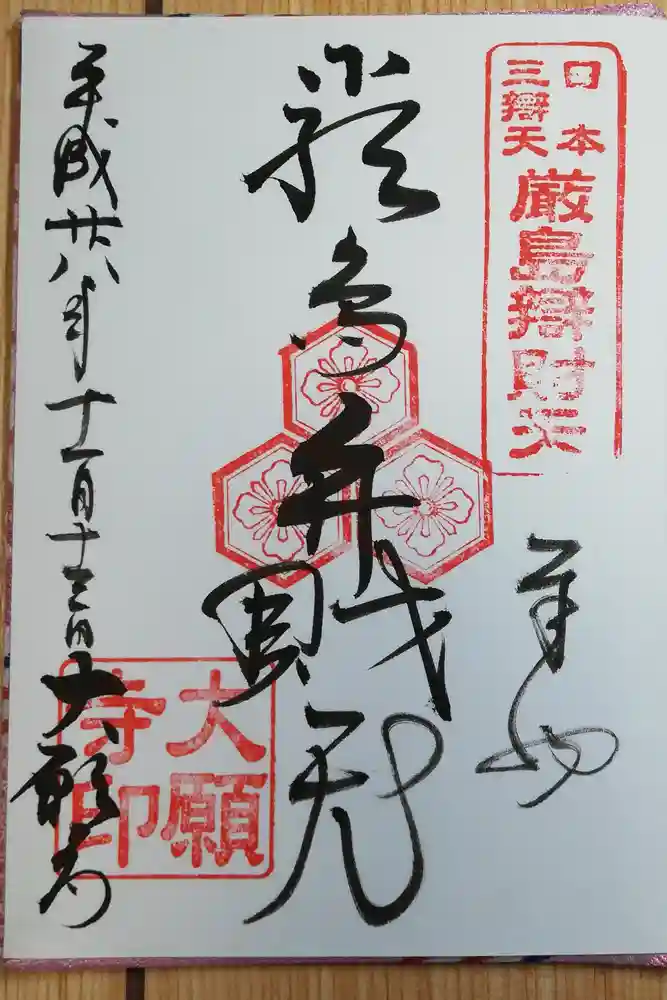 日本
三辯天
厳島辯財天
奉拝
厳島弁財天
平成廿八年十一月十三日
大願寺
大願
寺印